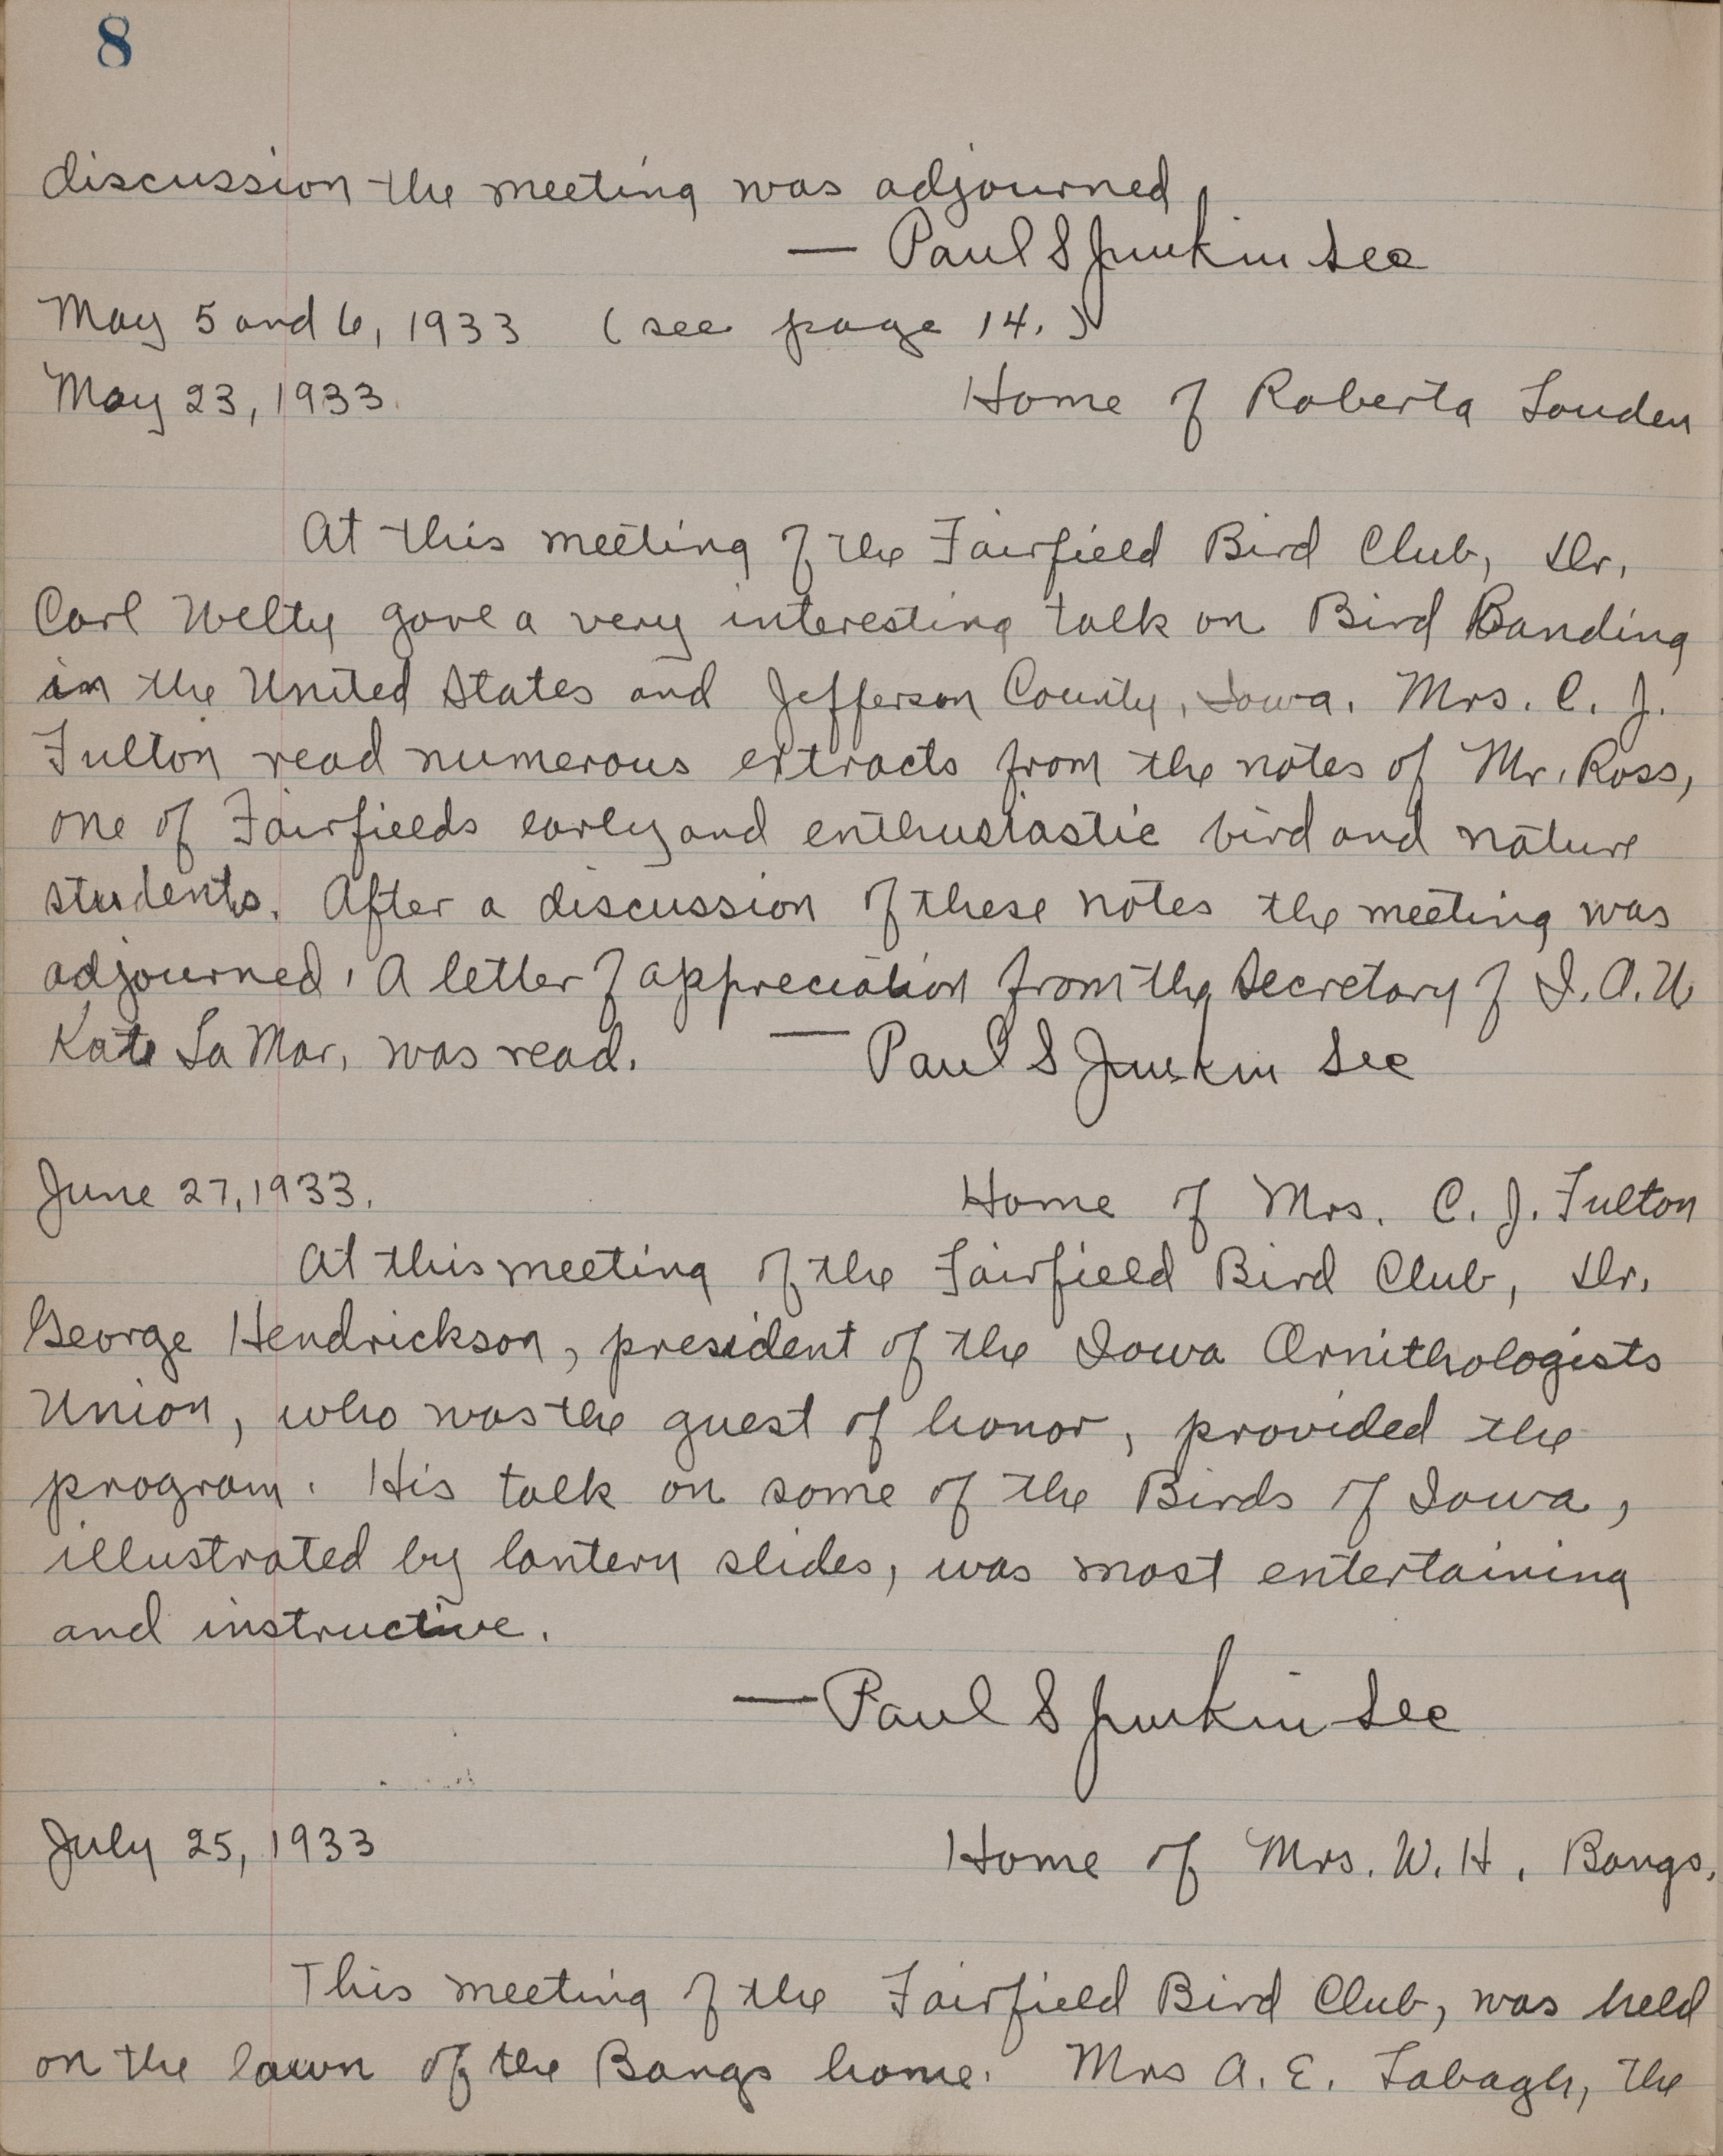 8
discussion the meeting was adjourned
— Paul S Junkin Sec
May 5 and 6, 1933 (see page 14.)
May 23, 1933. Home of Roberta Louden
At this meeting of the Fairfield Bird Club, Dr.
Carl Welty gave a very interesting talk on Bird Banding
in the United States and Jefferson County, Iowa. Mrs. C. J.
Fulton read numerous extracts from the notes of Mr. Ross,
one of Fairfields early and enthusiastic bird and nature
students. After a discussion of these notes the meeting was
adjourned. A letter of appreciation from the Secretary of I.O.U
Kate La Mar, was read. — Paul S Junkin Sec
June 27, 1933. Home of Mrs. C. J. Fulton
At this meeting of the Fairfield Bird Club, Dr.
George Hendrickson, president of the Iowa Ornithologists
Union, who was the guest of honor, provided the
program. His talk on some of the Birds of Iowa,
illustrated by lantern slides, was most entertaining
and instructive.
— Paul S Junkin Sec
July 25, 1933 Home of Mrs. W. H. Bangs.
This meeting of the Fairfield Bird Club, was held
on the lawn of the Bangs home. Mrs A. E. Labagh, the